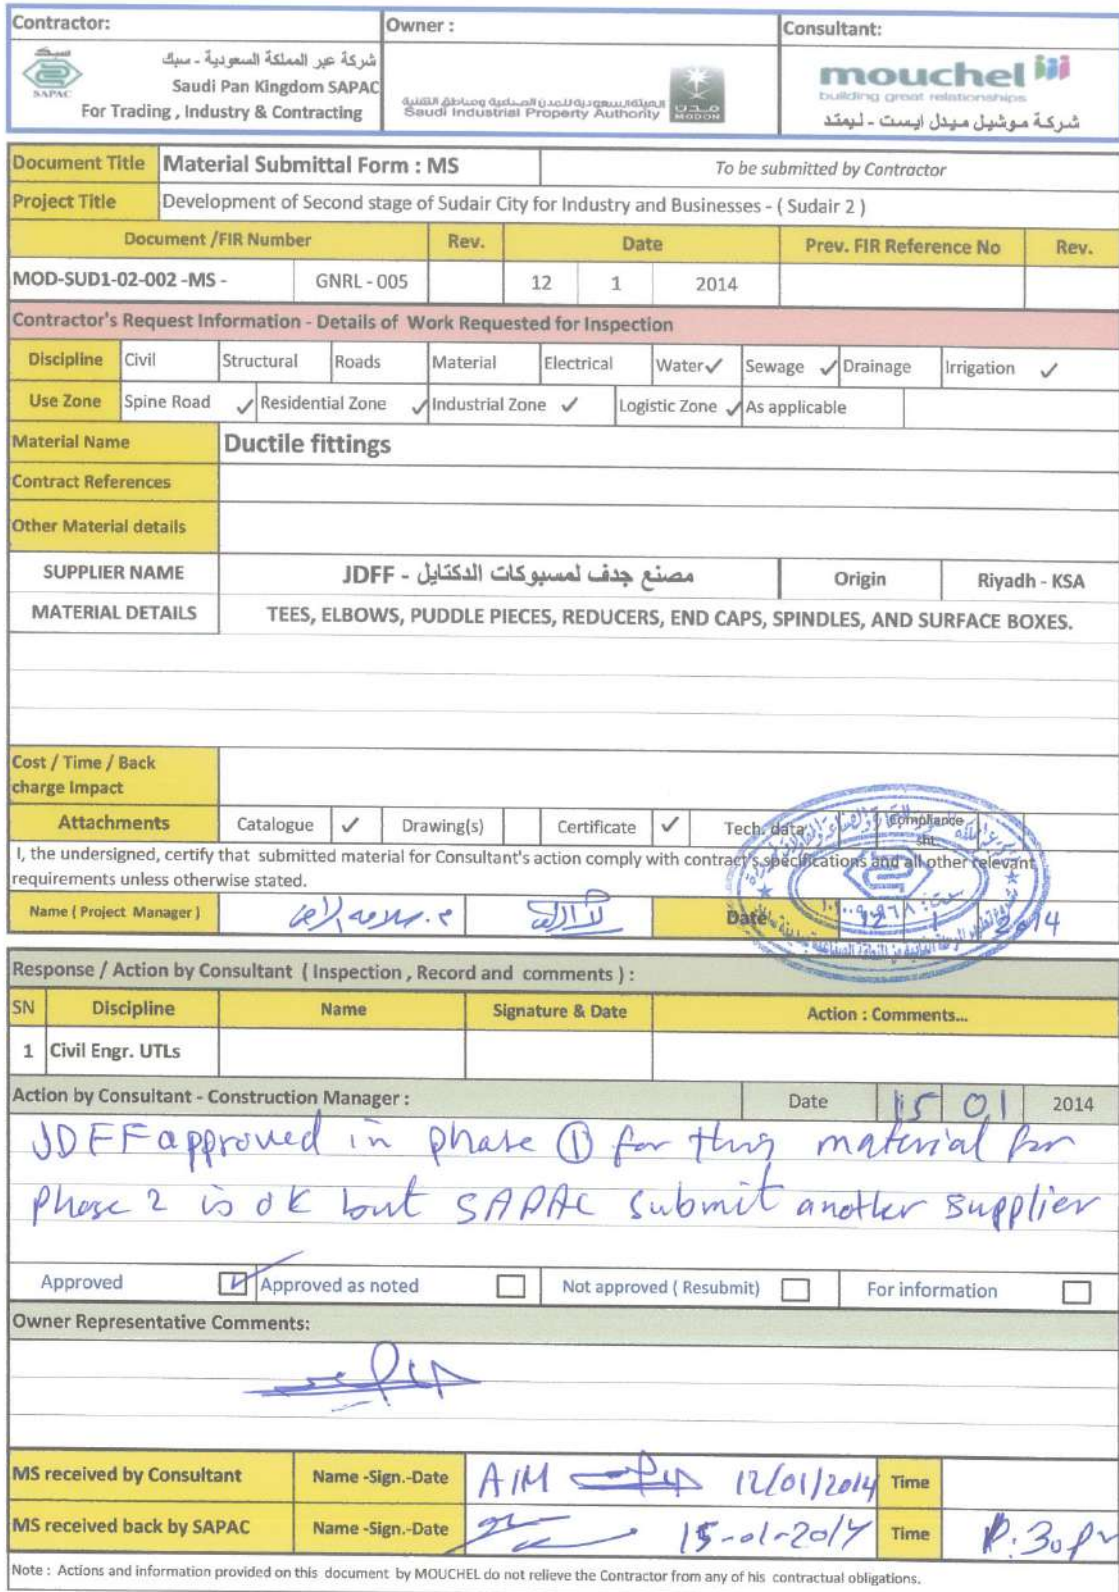 Contractor:
Owner :
Consultant:
سبك
SAPAC
شركة عبر المملكة السعودية - سبك
Saudi Pan Kingdom SAPAC
For Trading , Industry & Contracting
الهيئة السعودية للمدن الصناعية ومناطق التقنية
Saudi Industrial Property Authority
مدن
MODON
mouchel
building great relationships
شركة موشيل ميدل ايست - ليمتد
Document Title Material Submittal Form : MS To be submitted by Contractor
Project Title Development of Second stage of Sudair City for Industry and Businesses - ( Sudair 2 )
Document /FIR Number Rev. Date Prev. FIR Reference No Rev.
MOD-SUD1-02-002 -MS - GNRL - 005 12 1 2014
Contractor's Request Information - Details of Work Requested for Inspection
Discipline Civil Structural Roads Material Electrical Water ✓ Sewage ✓ Drainage Irrigation ✓
Use Zone Spine Road ✓ Residential Zone ✓ Industrial Zone ✓ Logistic Zone ✓ As applicable
Material Name Ductile fittings
Contract References
Other Material details
SUPPLIER NAME مصنع جدف لمسبوكات الدكتايل - JDFF Origin Riyadh - KSA
MATERIAL DETAILS TEES, ELBOWS, PUDDLE PIECES, REDUCERS, END CAPS, SPINDLES, AND SURFACE BOXES.
Cost / Time / Back
charge Impact
Attachments Catalogue ✓ Drawing(s) Certificate ✓ Tech. data Compliance
sht.
I, the undersigned, certify that submitted material for Consultant's action comply with contract's specifications and all other relevant
requirements unless otherwise stated.
Name ( Project Manager ) Date 12 1 2014
Response / Action by Consultant ( Inspection , Record and comments ) :
SN Discipline Name Signature & Date Action : Comments...
1 Civil Engr. UTLs
Action by Consultant - Construction Manager : Date 15 01 2014
JDFF approved in phase ① for this material for
phase 2 is ok but SAPAC submit another supplier
Approved ✓ Approved as noted Not approved ( Resubmit) For information
Owner Representative Comments:
MS received by Consultant Name -Sign.-Date AIM 12/01/2014 Time
MS received back by SAPAC Name -Sign.-Date 15-01-2014 Time
Note : Actions and information provided on this document by MOUCHEL do not relieve the Contractor from any of his contractual obligations.